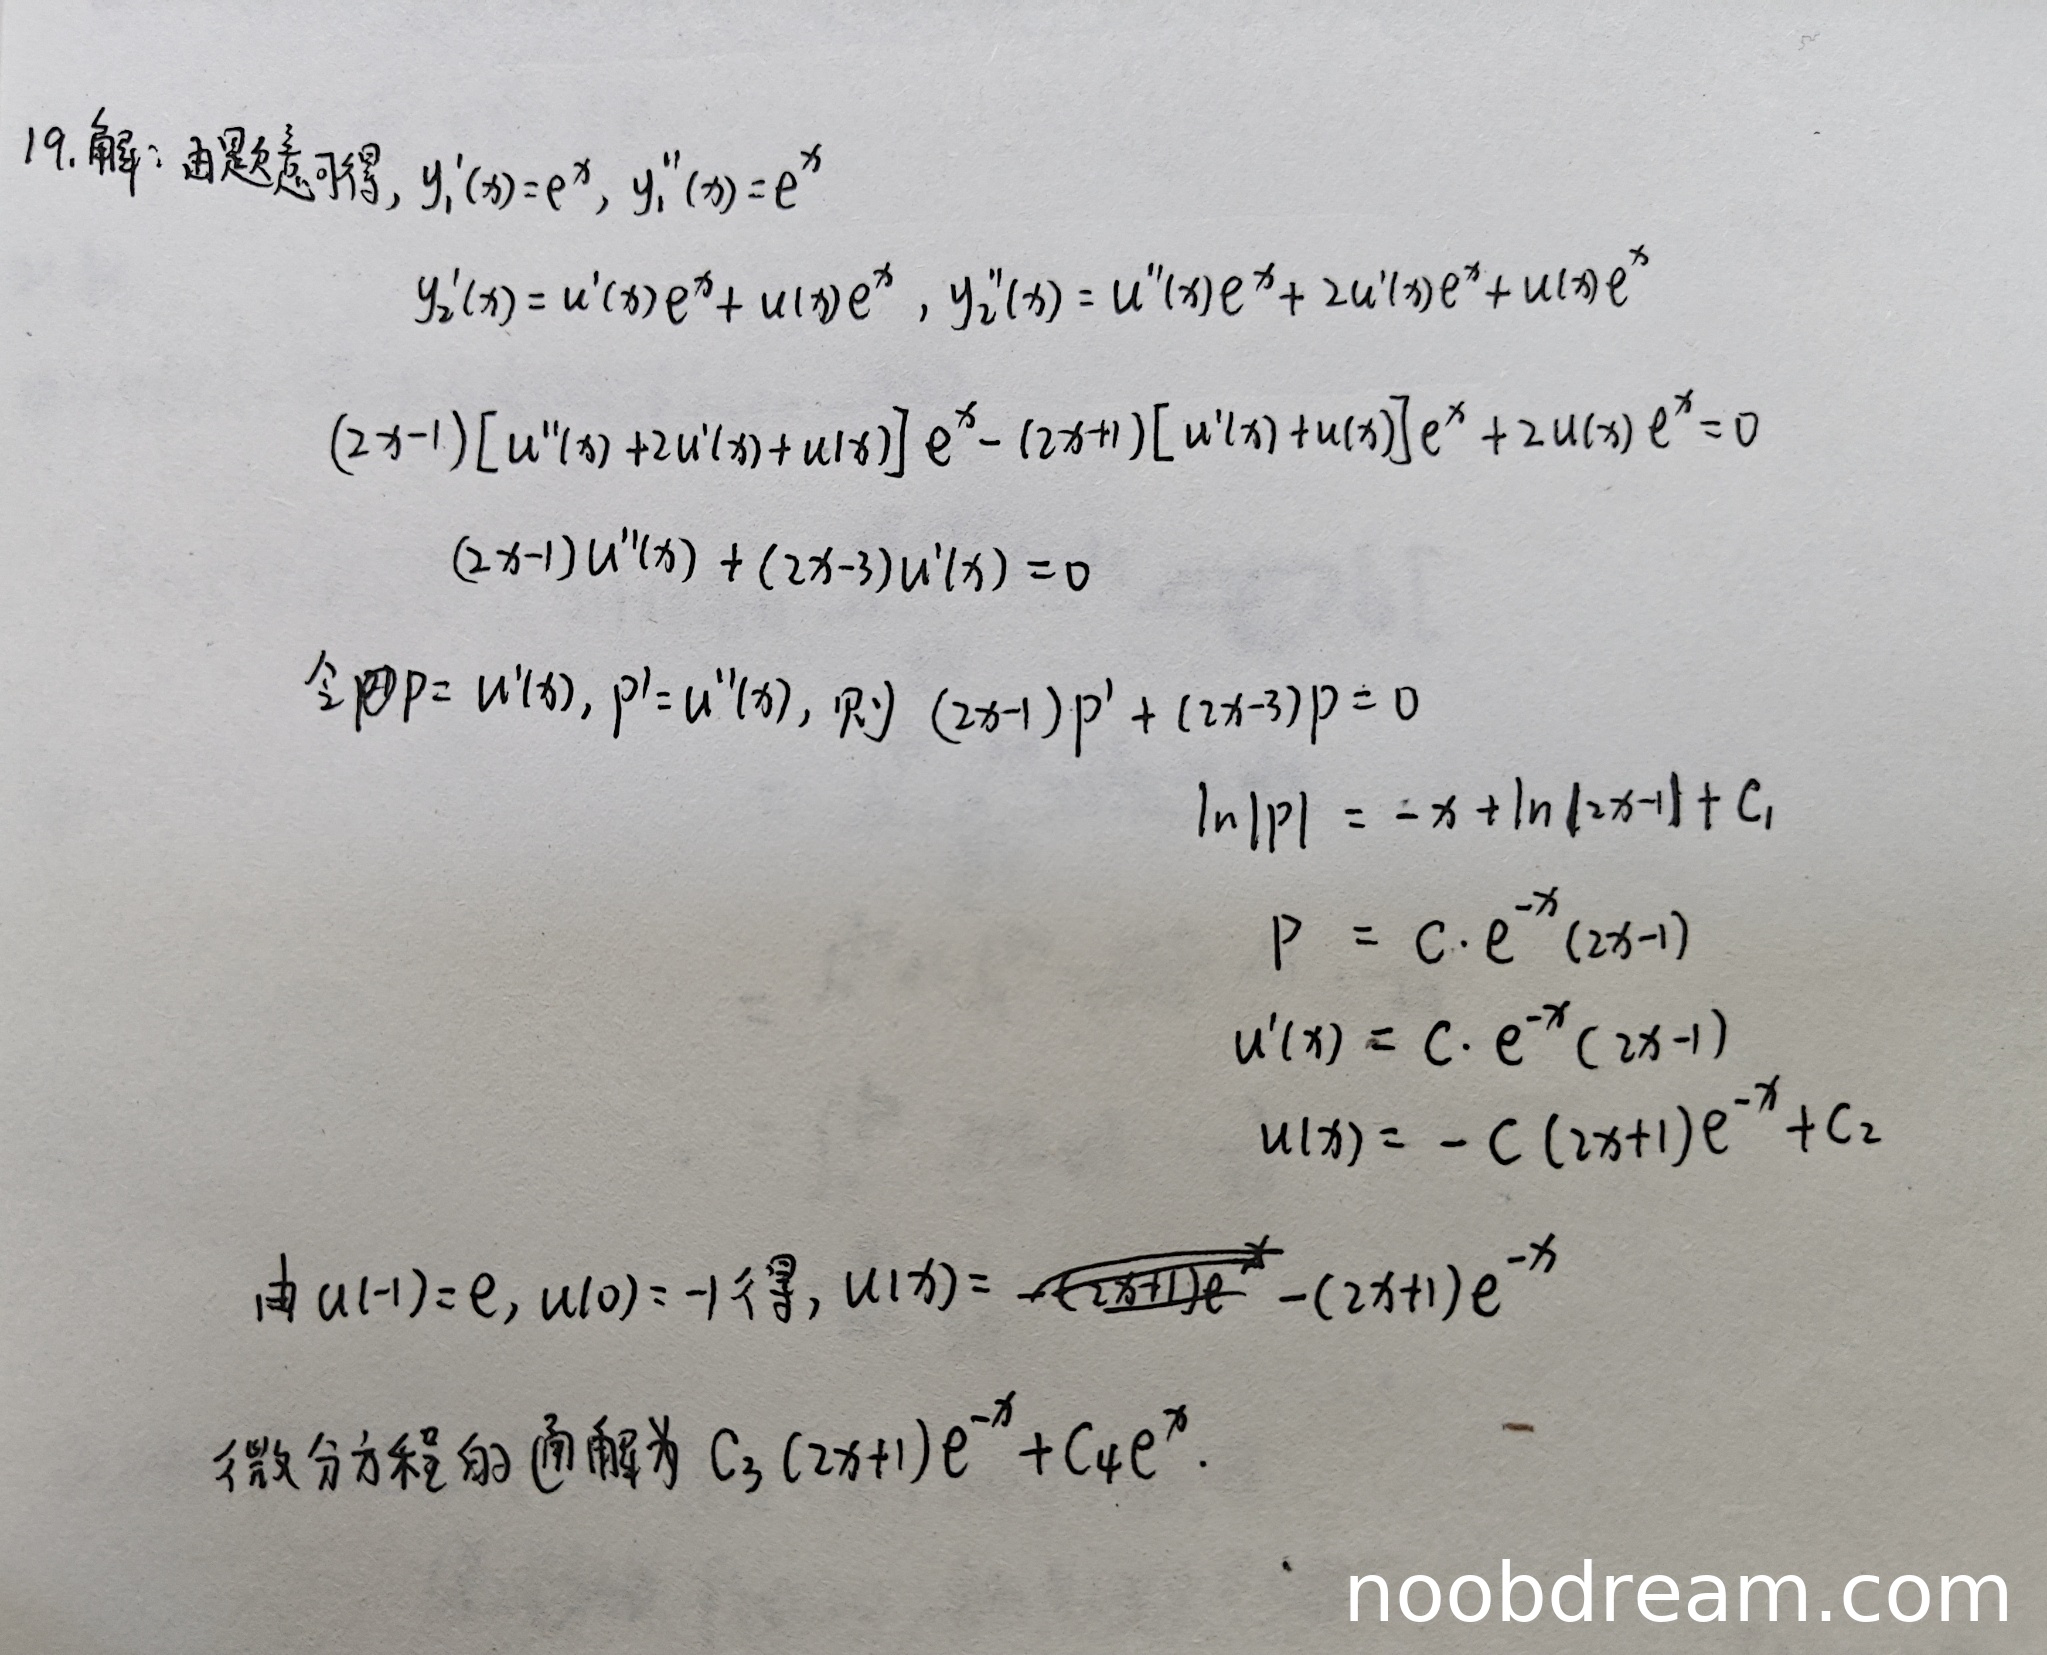 19.解：由题意可得, y₁'(x)=eˣ, y₁''(x)=eˣ
y₂'(x)=u'(x)eˣ+u(x)eˣ, y₂''(x)=u''(x)eˣ+2u'(x)eˣ+u(x)eˣ
(2x-1)[u''(x)+2u'(x)+u(x)]eˣ-(2x+1)[u'(x)+u(x)]eˣ+2u(x)eˣ=0
(2x-1)u''(x)+(2x-3)u'(x)=0
令p=u'(x), p'=u''(x), 则 (2x-1)p'+(2x-3)p=0
ln|p| = -x+ln|2x-1|+C₁
p = C·e⁻ˣ(2x-1)
u'(x) = C·e⁻ˣ(2x-1)
u(x) = -C(2x+1)e⁻ˣ+C₂
由u(-1)=e, u(0)=-1得, u(x)= -(2x+1)e⁻ˣ
微分方程的通解为 C₃(2x+1)e⁻ˣ+C₄eˣ.
noobdream.com